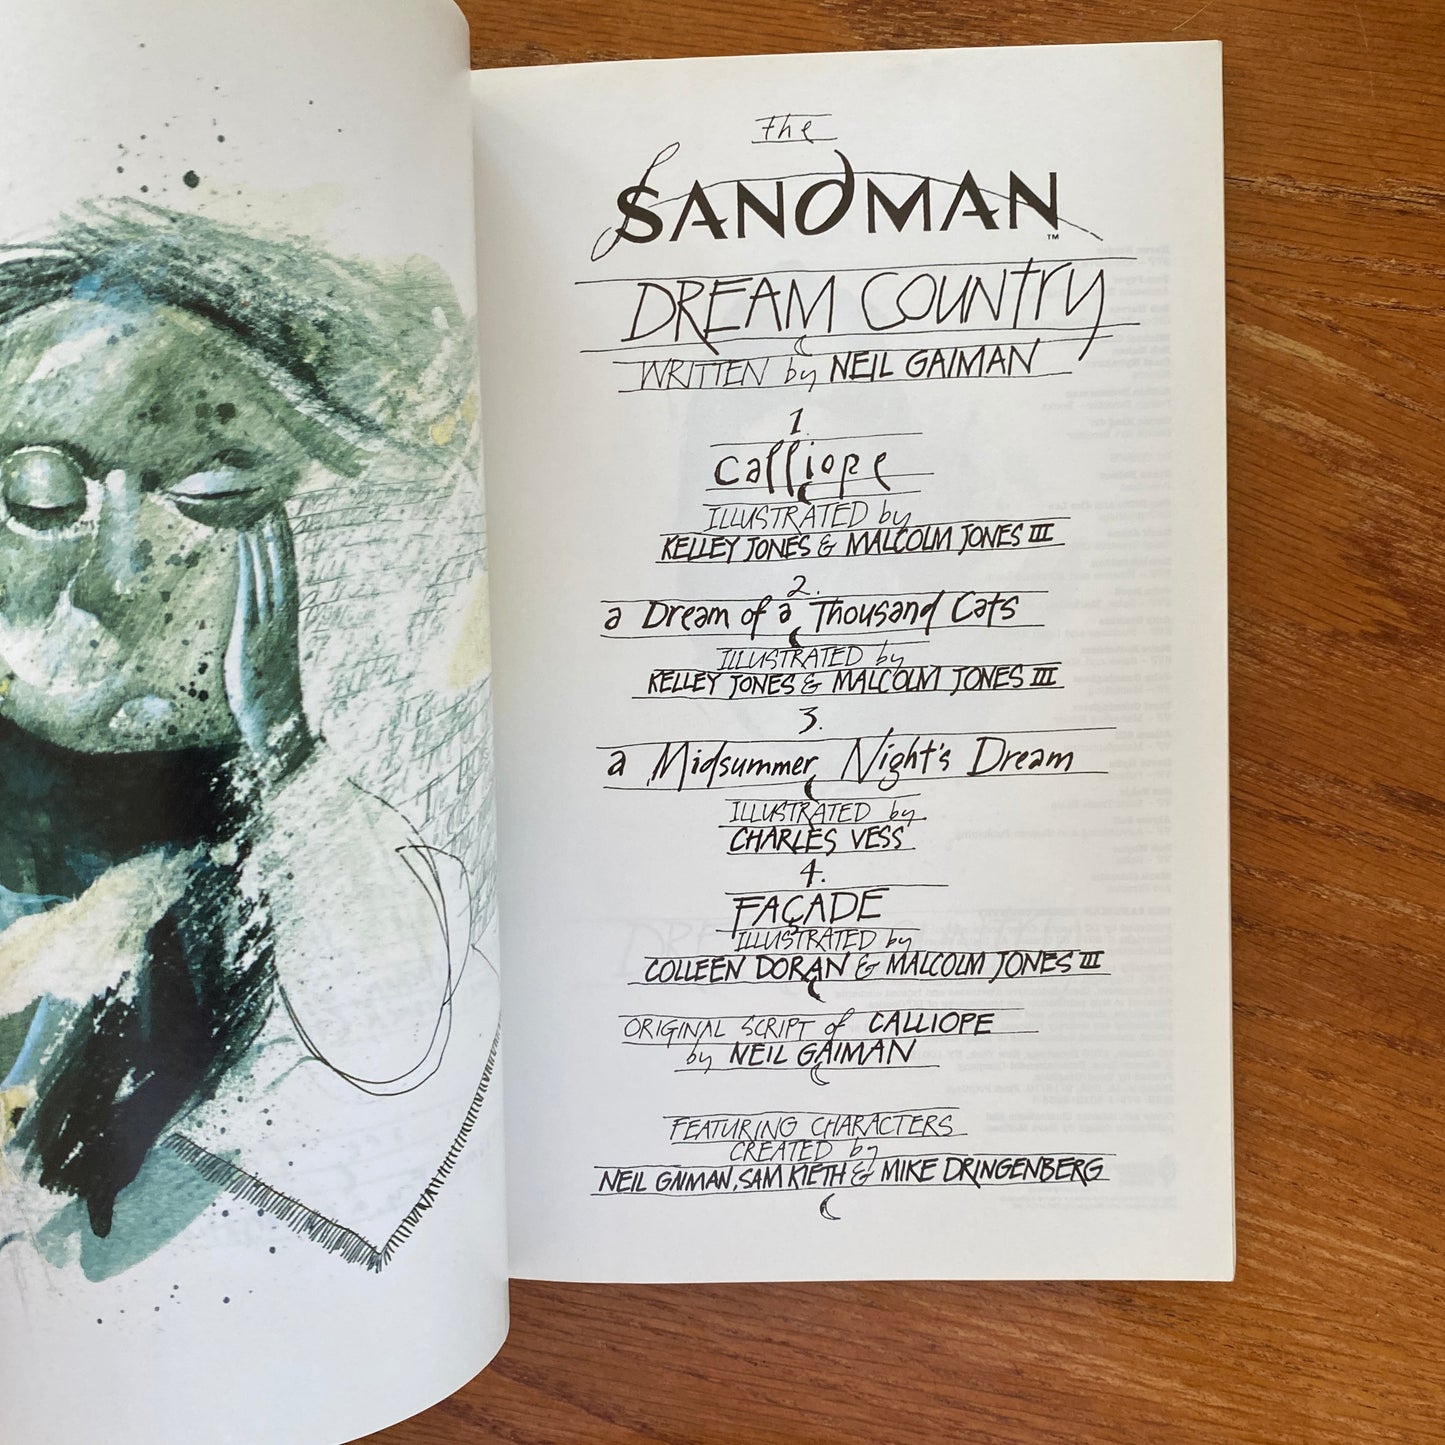 the
SANDMAN™
DREAM COUNTRY
WRITTEN by NEIL GAIMAN
1.
Calliope
ILLUSTRATED by
KELLEY JONES & MALCOLM JONES III
2.
a Dream of a Thousand Cats
ILLUSTRATED by
KELLEY JONES & MALCOLM JONES III
3.
a Midsummer Night's Dream
ILLUSTRATED by
CHARLES VESS
4.
FAÇADE
ILLUSTRATED by
COLLEEN DORAN & MALCOLM JONES III
ORIGINAL SCRIPT of CALLIOPE
by NEIL GAIMAN
FEATURING CHARACTERS
CREATED by
NEIL GAIMAN, SAM KIETH & MIKE DRINGENBERG